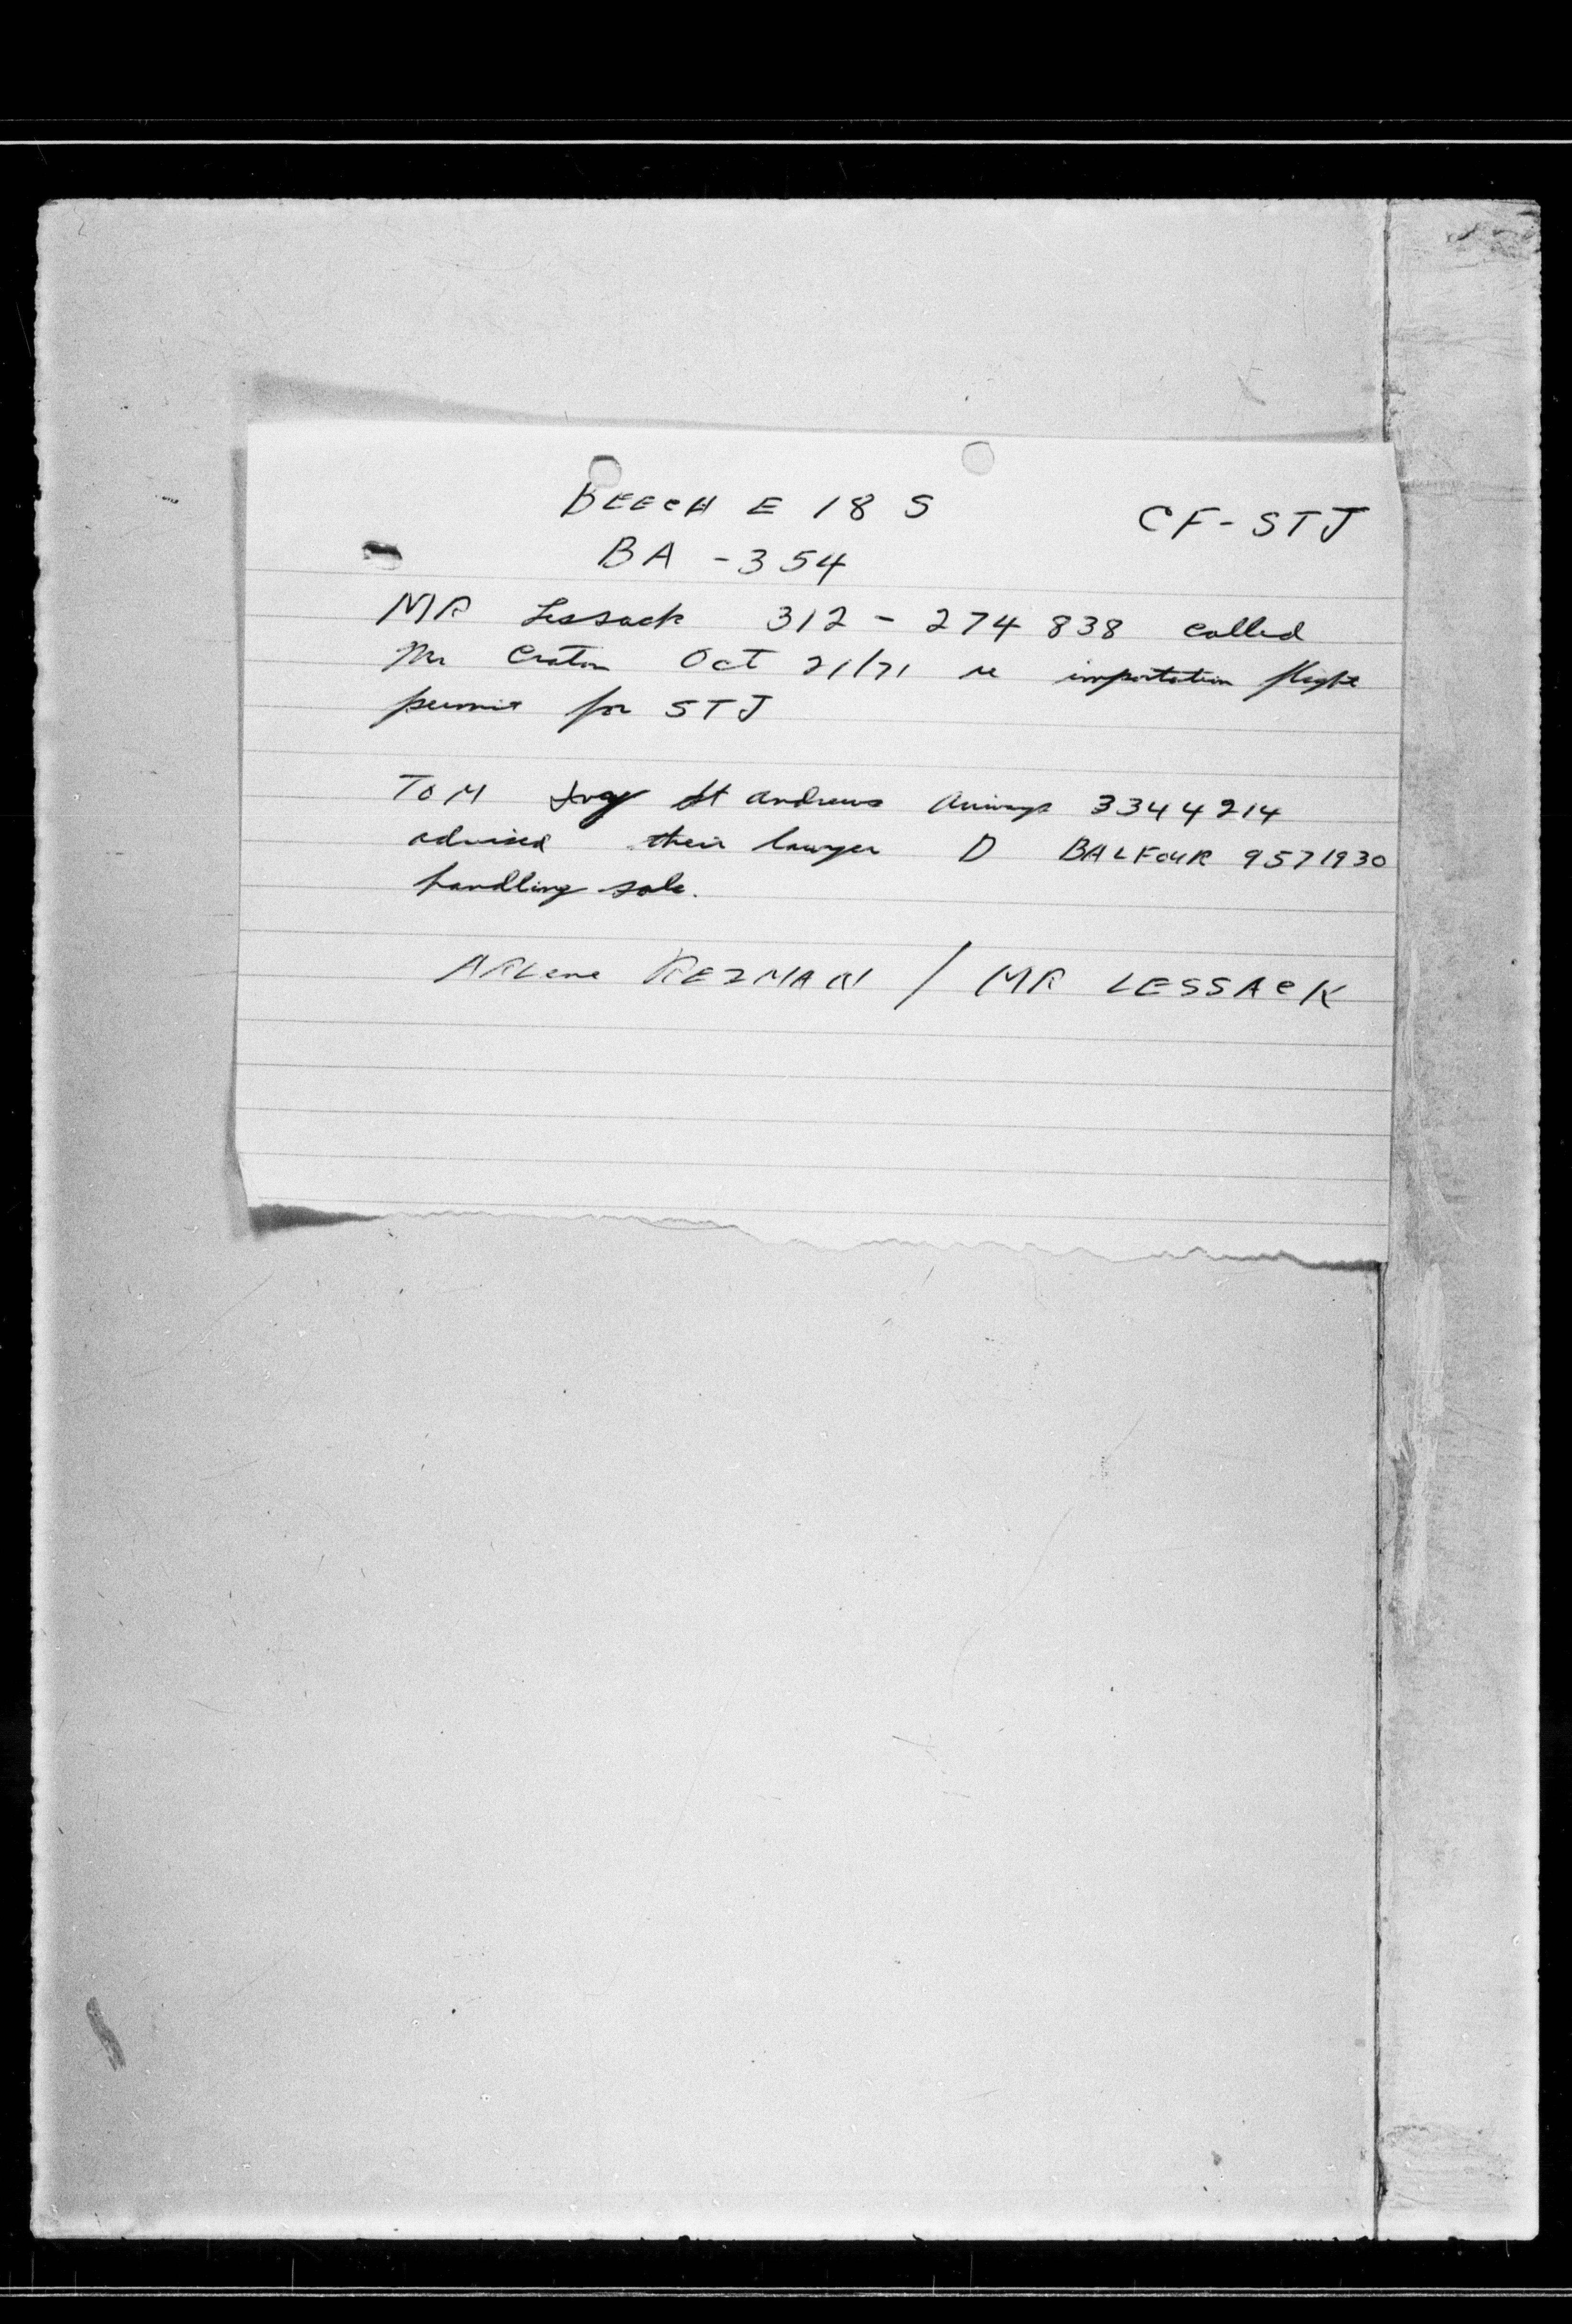 BEECH E 18 S CF-STJ
BA - 354
MR Lessack 312 - 274 838 called
Mr Craton Oct 21/71 re importation flight
permit for STJ
TOM St Andrews Airways 334 4214
advised their lawyer D BALFOUR 9571930
handling sale.
ARLene REZMAN / MR LESSACK